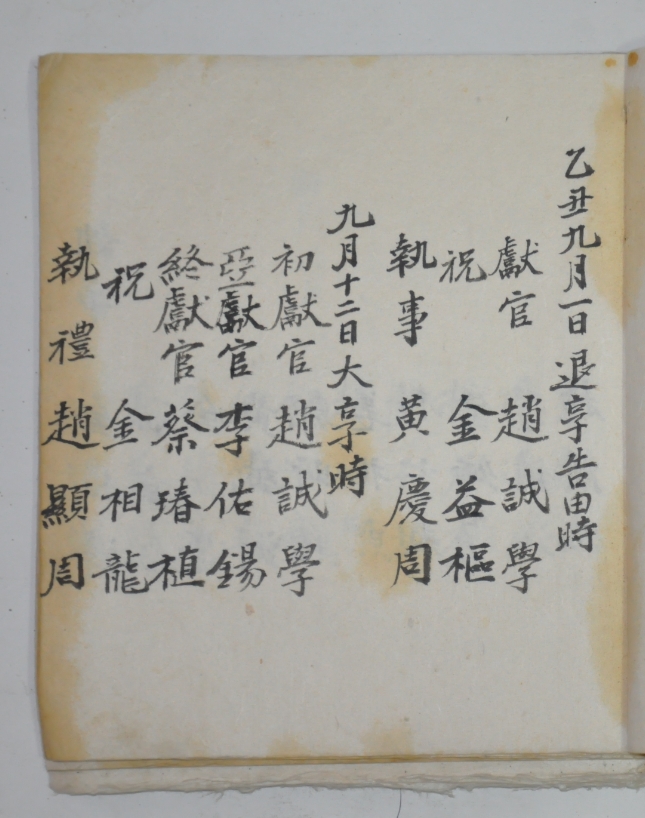 乙丑九月一日退享告由時
獻官 趙誠學
祝 金益樞
執事 黃慶周
九月十二日大享時
初獻官 趙誠學
亞獻官 李佑鍚
終獻官 蔡瑃植
祝 金相龍
執禮 趙顯周